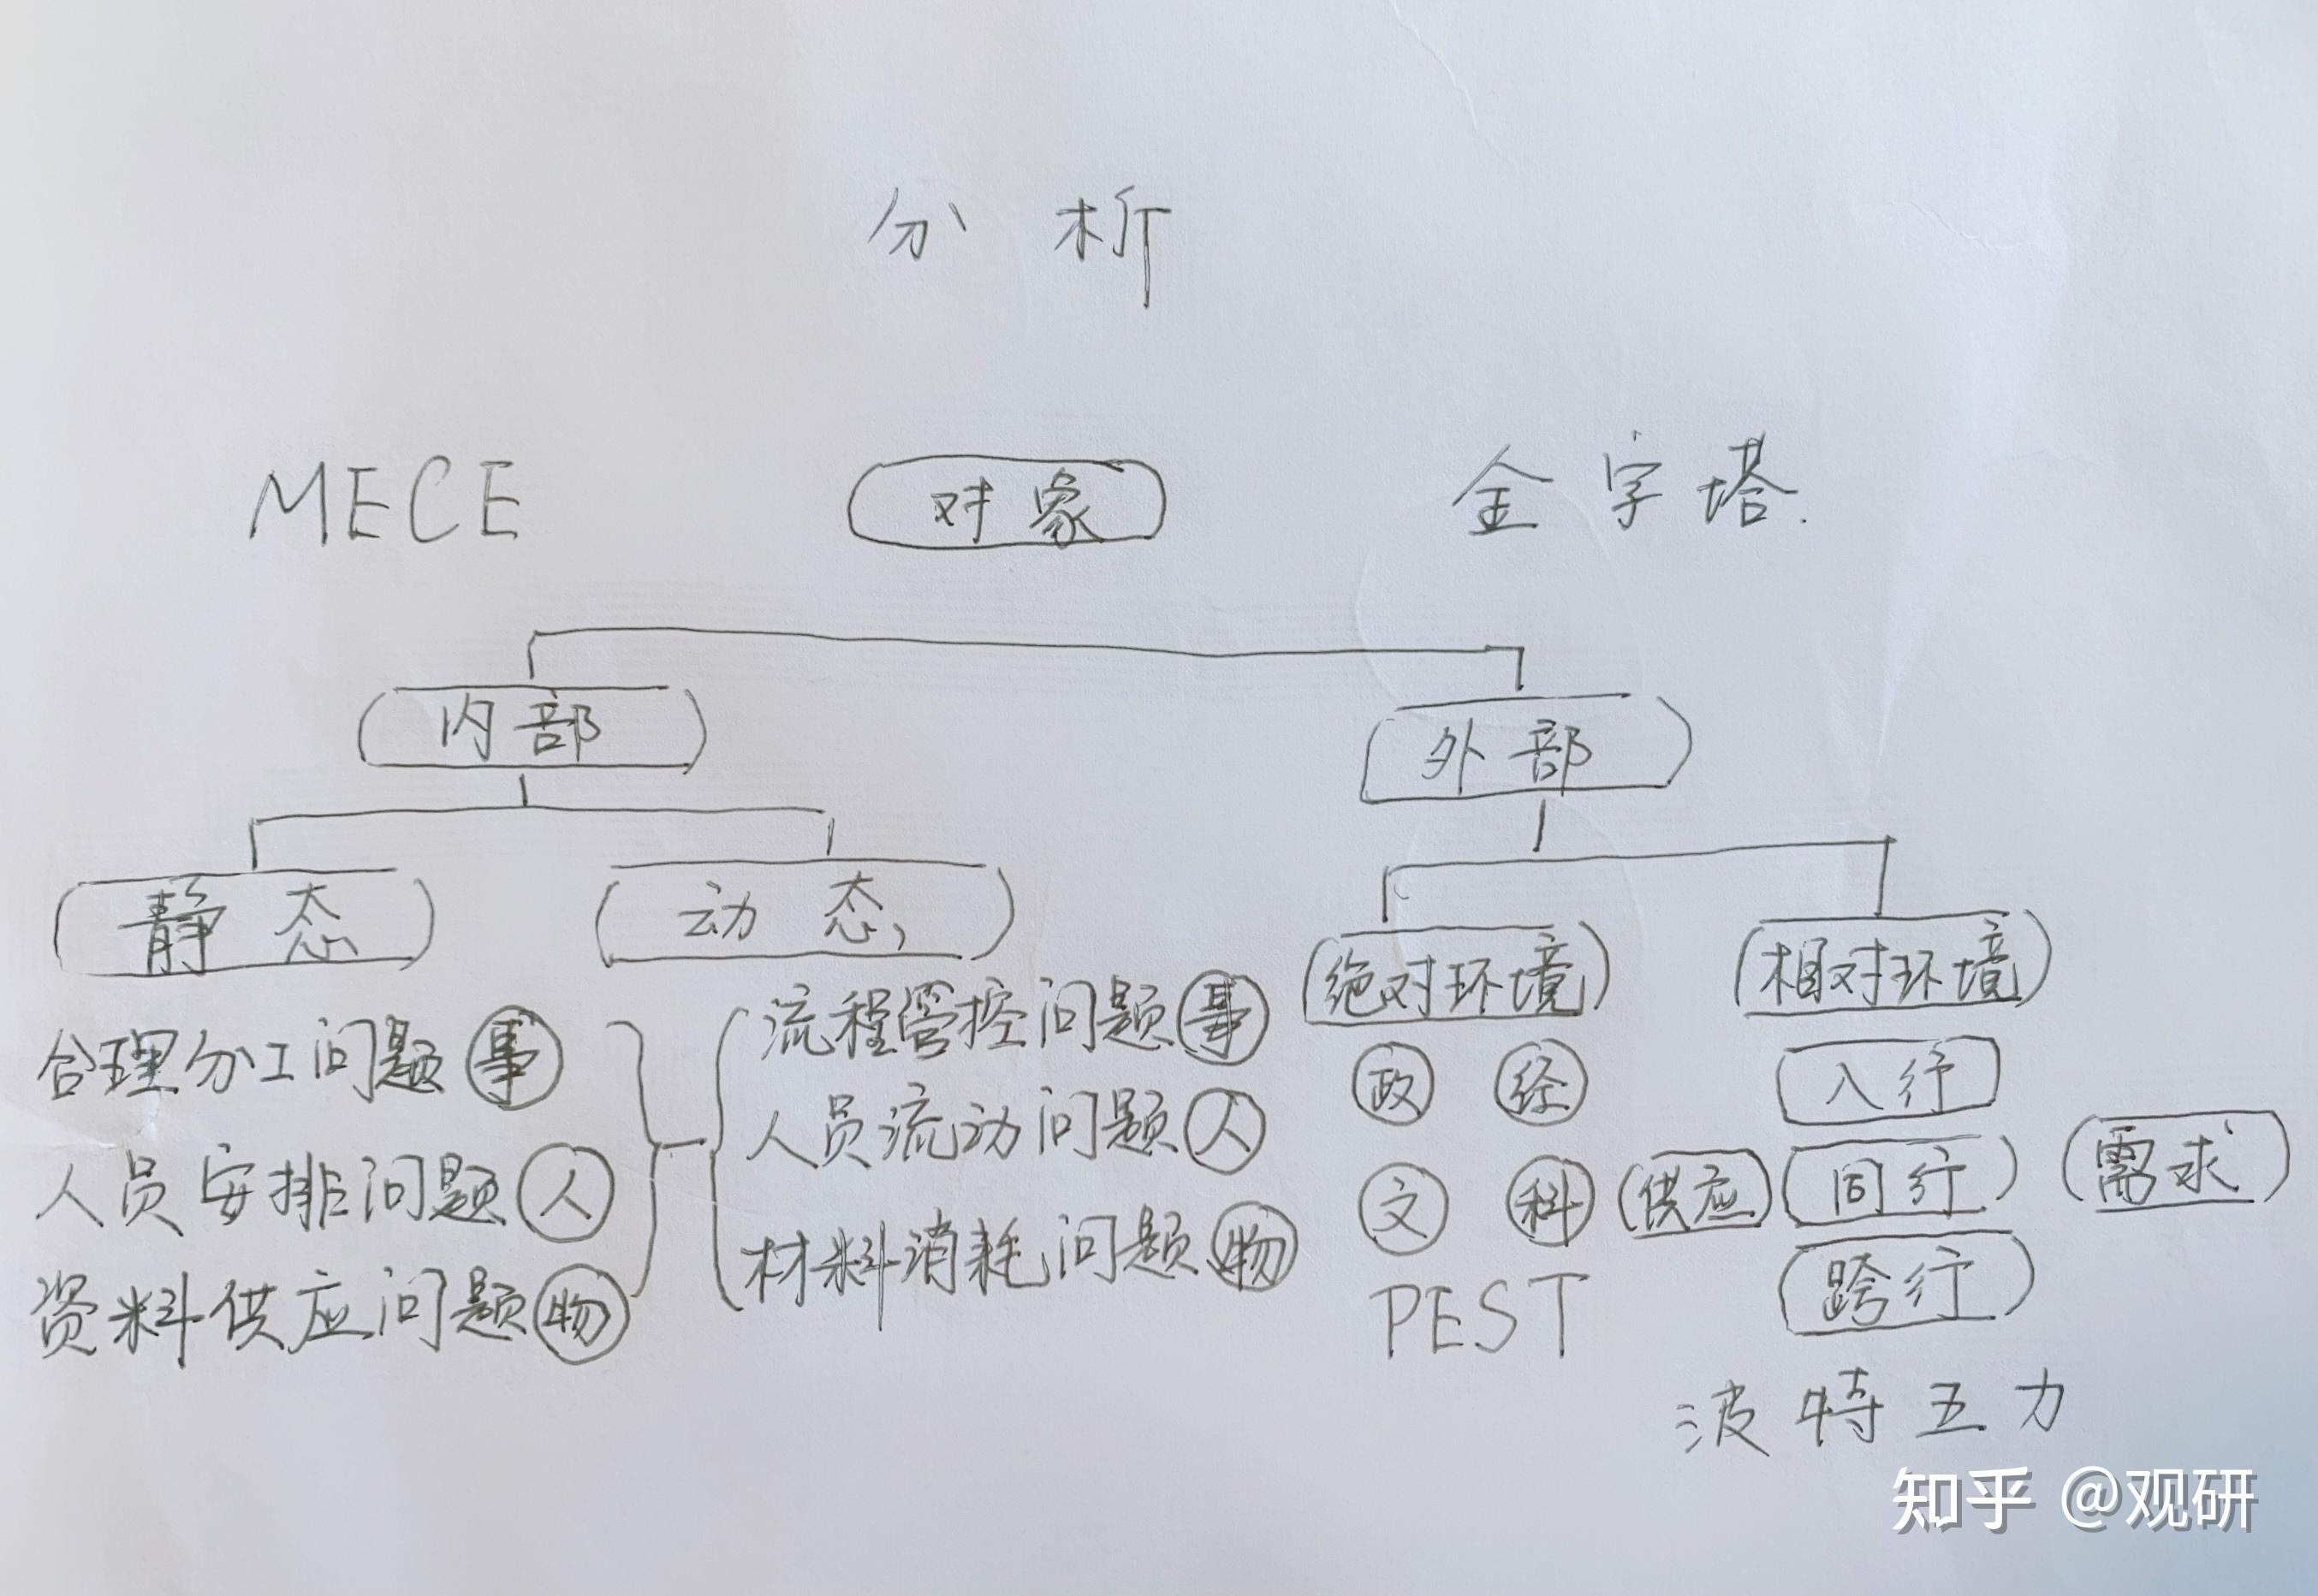 分析
MECE
对象
金字塔
内部
外部
静态
动态
绝对环境
相对环境
合理分工问题 事
人员安排问题 人
资料供应问题 物
流程管控问题 事
人员流动问题 人
材料消耗问题 物
政 经
文 科
PEST
入行
供应 同行 需求
跨行
波特五力
知乎 @观研